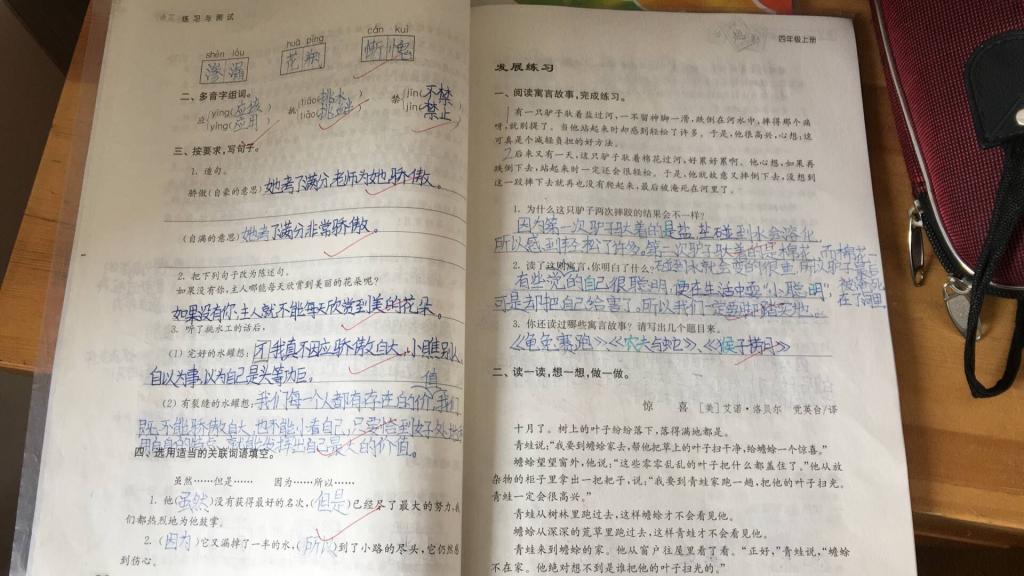 练习与测试
shèn lòu
huā píng
cán kuì
渗漏
花瓶
惭愧
二、多音字组词。
应
yīng(应该
yìng(应用
挑
tiāo(挑水
tiǎo(挑战
禁
jīn(不禁
jìn(禁止
三、按要求,写句子。
1. 造句。
骄傲(自豪的意思)她考了满分,老师为她骄傲。
(自满的意思)她考了满分非常骄傲。
2. 把下列句子改为陈述句。
如果没有你,主人哪能每天欣赏到美丽的花朵呢?
如果没有你,主人就不能每天欣赏到美的花朵。
3. 听了挑水工的话后,
(1) 完好的水罐想:我真不因应骄傲自大,小瞧别人,
自以为事,以为自己是头等功臣。
值
(2) 有裂缝的水罐想:我们每个人都有存在的价,我们
既不能骄傲自大,也不能小看自己,只要恰到好处地
用自身的特点,就能发挥出自己最大的价值。
四、选用适当的关联词语填空。
虽然……但是…… 因为……所以……
1. 他(虽然)没有获得最好的名次,(但是)已经尽了最大的努力,我
们都热烈地为他鼓掌。
2. (因为)它又漏掉了一半的水,(所以)到了小路的尽头,它仍然感
到伤心。
四年级上册
发展练习
一、阅读寓言故事,完成练习。
1有一只驴子驮着盐过河,一不留神脚一滑,跌倒在河水中,摔得那个痛
呀,就别提了。当他站起来时却感到轻松了许多。于是,他很高兴,心想:这
可真是个减轻负担的好方法。
2后来又有一天,这只驴子驮着棉花过河,好累好累啊。他心想,如果再
跌倒下去,站起来时一定还会很轻松。于是,他就故意又摔倒下去,没想到
这一跤摔下去就再也没有爬起来,最后被淹死在河里了。
1. 为什么这只驴子两次摔跤的结果会不一样?
因为第一次驴子驮着的是盐,盐碰到水会溶化,
所以感到轻松了许多。第二次驴子驮着的是棉花,而棉花
2. 读了这则寓言,你明白了什么?碰到水就会变的很重,所以驴子最后
被淹死
在了河里。
有些觉的自己很聪明,便在生活中耍“小聪明”,
可是却把自己给害了。所以我们一定要脚踏实地。
3. 你还读过哪些寓言故事? 请写出几个题目来。
《龟兔赛跑》、《农夫与蛇》、《猴子捞月》
二、读一读,想一想,做一做。
惊 喜 [美] 艾诺·洛贝尔 党英台/译
十月了。树上的叶子纷纷落下,落得满地都是。
青蛙说:“我要到蟾蜍家去,帮他把草上的叶子扫干净,给蟾蜍一个惊喜。”
蟾蜍望望窗外,他说:“这些零零乱乱的叶子把什么都盖住了。”他从放
杂物的柜子里拿出一把耙子,说:“我要到青蛙家跑一趟,把他的叶子扫光。
青蛙一定会很高兴。”
青蛙从树林里跑过去,这样蟾蜍才不会看见他。
蟾蜍从深深的荒草里跑过去,这样青蛙才不会看见他。
青蛙来到蟾蜍的家。他从窗户往屋里看了看。“正好,”青蛙说,“蟾蜍
不在家。他绝对想不到是谁把他的叶子扫光的。”